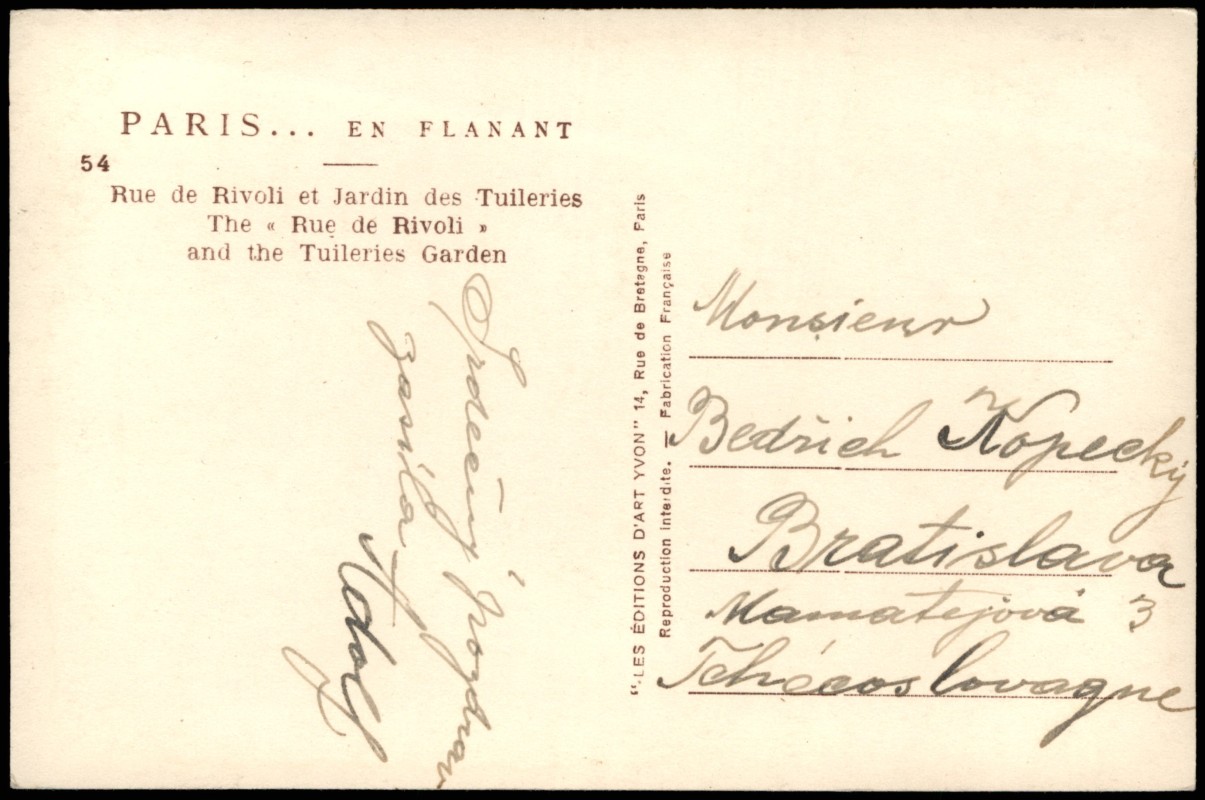 PARIS... EN FLANANT
54
Rue de Rivoli et Jardin des Tuileries
The « Rue de Rivoli »
and the Tuileries Garden
Srdečný pozdrav
zasílá
Adolf
"LES ÉDITIONS D'ART YVON" 14, Rue de Bretagne, Paris
Reproduction interdite. — Fabrication Française
Monsieur
Bedřich Kopecký
Bratislava
Mamatejová 3
Tchécoslovaqne